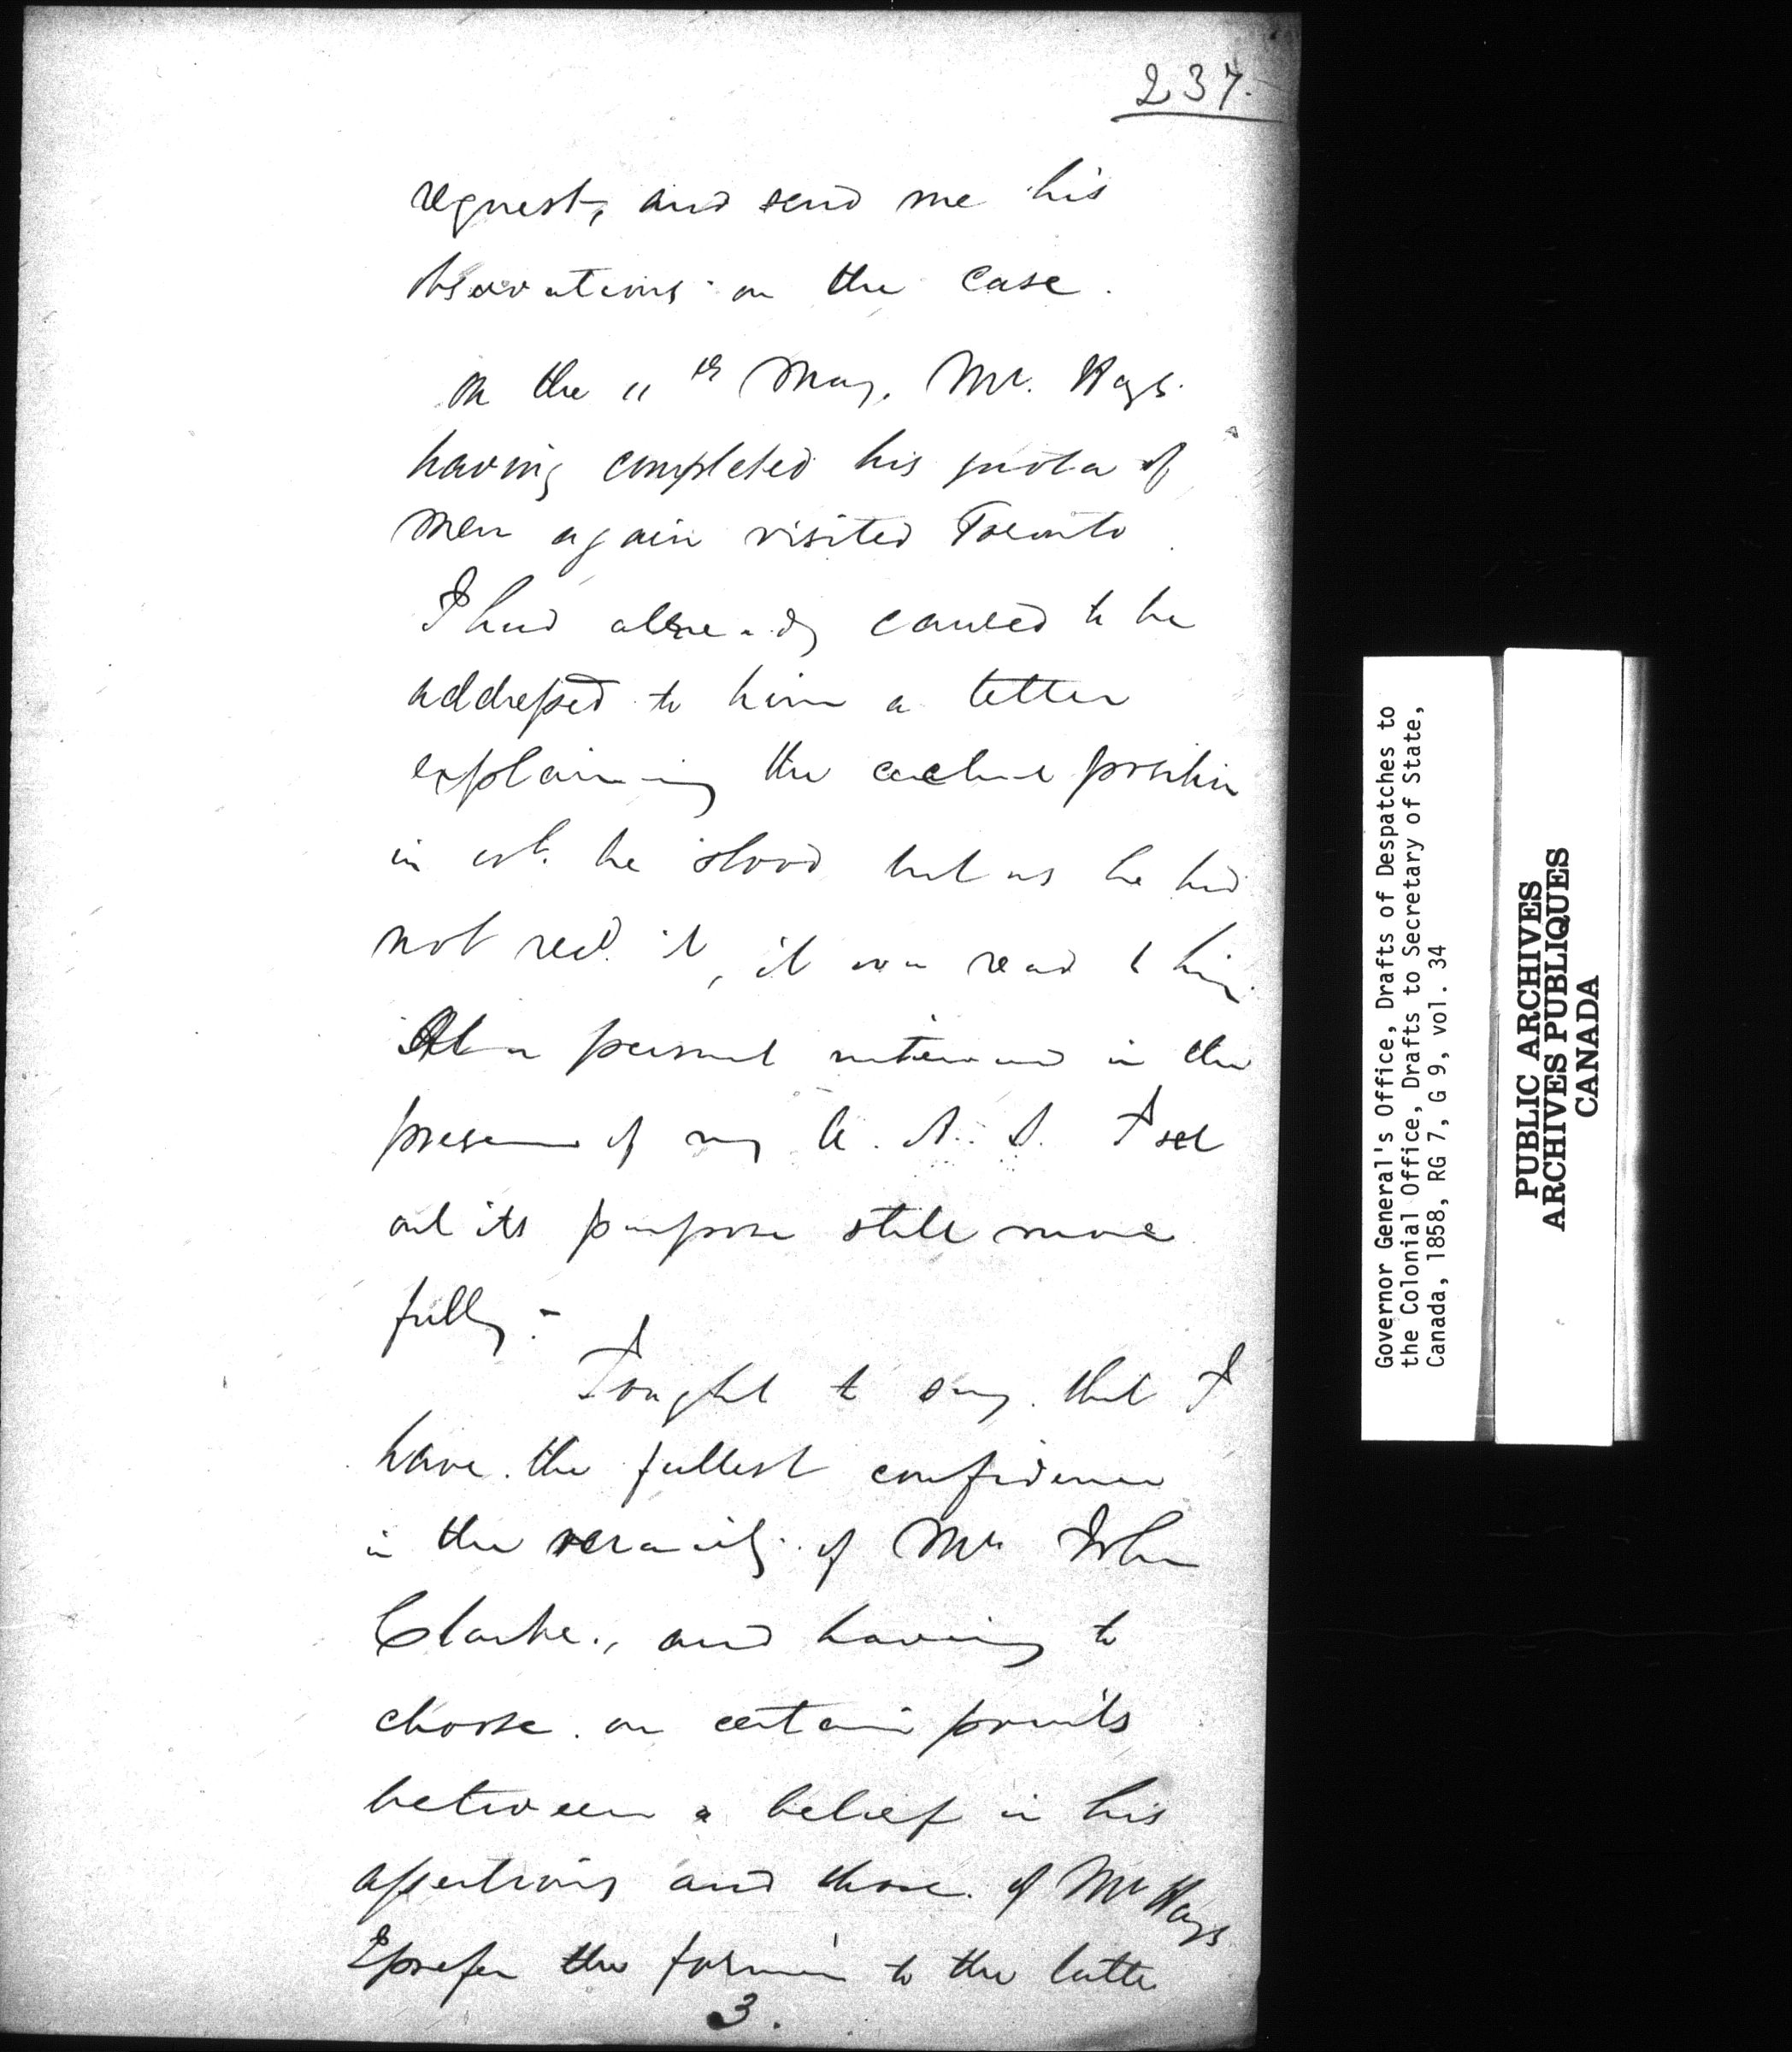 237.
request, and send me his
observations on the case.
On the 11th May, Mr. Hays
having completed his quota of
men again visited Toronto.
I had already caused to be
addressed to him a letter
explaining the actual position
in wh. he stood but as he had
not recd. it, it was read to him
At a personal interview in the
presence of my A. D. C. I set
out its purpose still more
fully.-
I ought to say that I
have the fullest confidence
in the veracity of Mr John
Clarke, and having to
choose on certain points
between a belief in his
assertions and those of Mr Hays
I prefer the former to the latter
3.
Governor General's Office, Drafts of Despatches to
the Colonial Office, Drafts to Secretary of State,
Canada, 1858, RG 7, G 9, vol. 34
PUBLIC ARCHIVES
ARCHIVES PUBLIQUES
CANADA